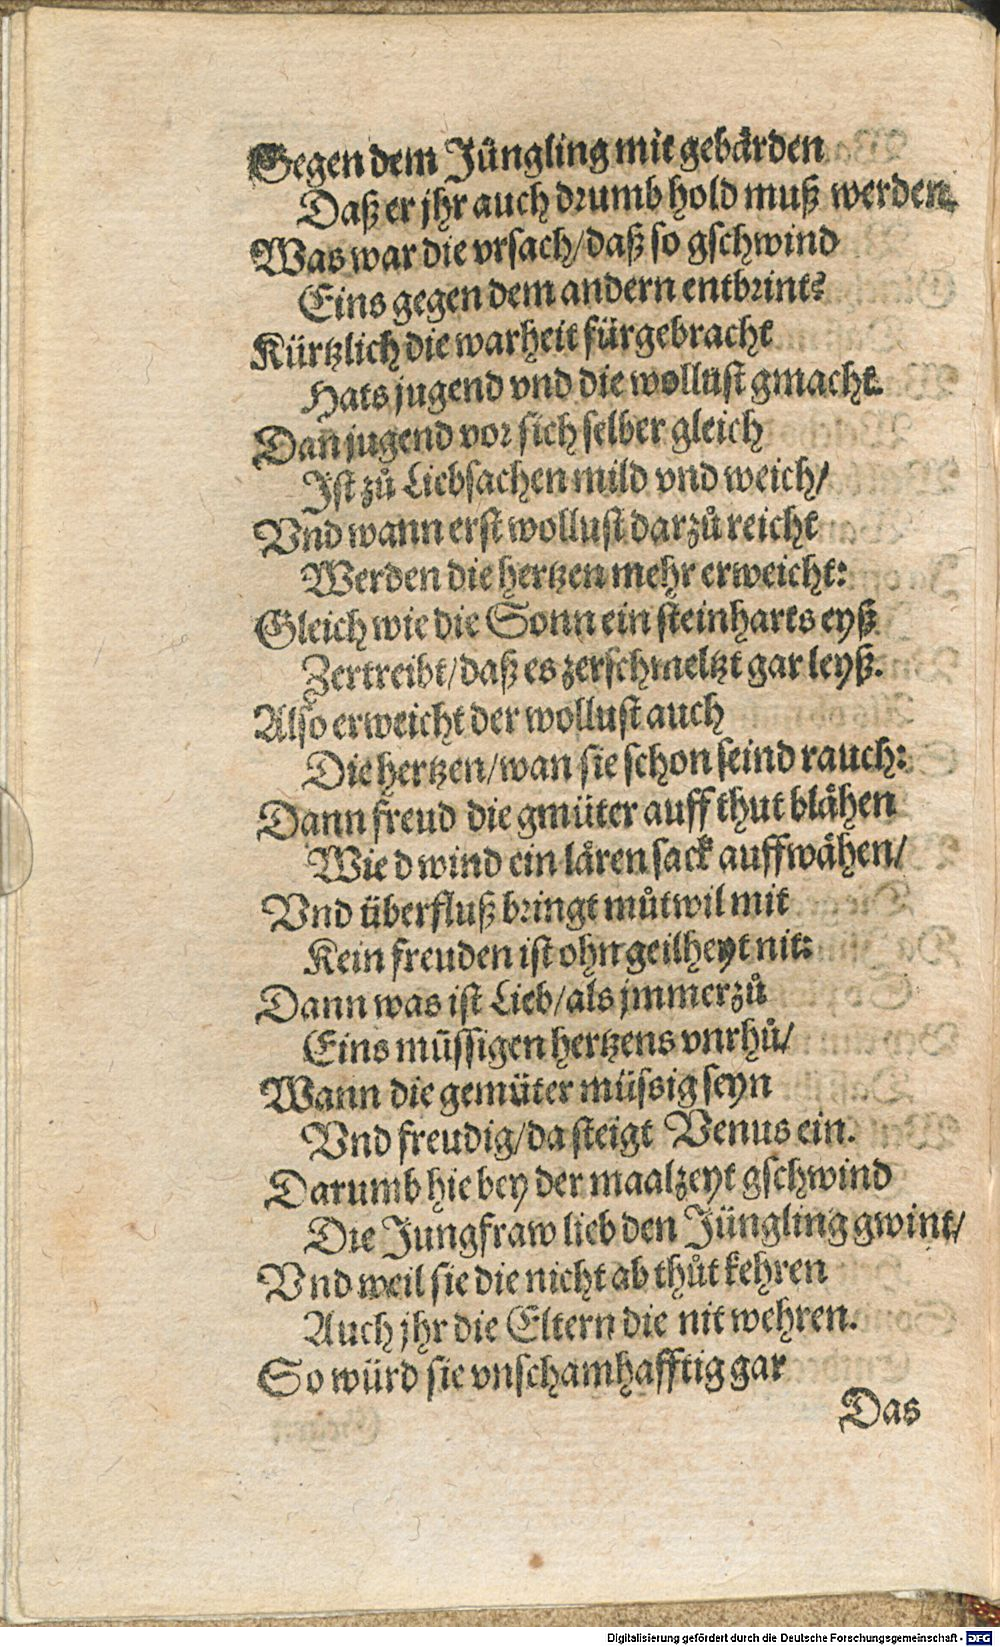 Gegen dem Jüngling mit gebaͤrden
Daß er jhr auch drumb hold muß werden.
Was war die vrsach/daß so gschwind
Eins gegen dem andern entbrint?
Kürtzlich die warheit fürgebracht
Hats jugend vnd die wollust gmacht.
Dañ jugend vor sich selber gleich
Ist zů Liebsachen mild vnd weich/
Vnd wann erst wollust darzů reicht
Werden die hertzen mehr erweicht:
Gleich wie die Sonn ein steinharts eyß
Zertreibt/daß es zerschmeltzt gar leyß.
Also erweicht der wollust auch
Die hertzen/wan sie schon seind rauch:
Dann freud die gmüter auff thut blaͤhen
Wie d wind ein laͤren sack auffwaͤhen/
Vnd überfluß bringt můtwil mit
Kein freuden ist ohn geilheyt nit:
Dann was ist Lieb/als jmmerzů
Eins müssigen hertzens vnrhů/
Wann die gemüter müssig seyn
Vnd freudig/da steigt Venus ein.
Darumb hie bey der maalzeyt gschwind
Die Jungfraw lieb den Jüngling gwint/
Vnd weil sie die nicht ab thůt kehren
Auch jhr die Eltern die nit wehren.
So würd sie vnschamhafftig gar
Das
Digitalisierung gefördert durch die Deutsche Forschungsgemeinschaft - DFG